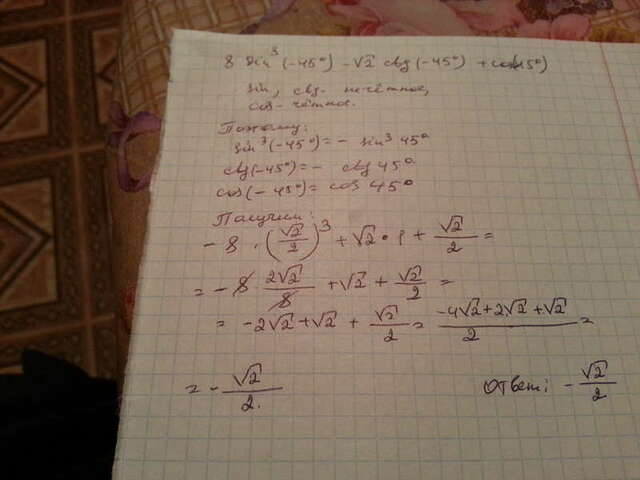 8 sin³(-45°) - √2 ctg(-45°) + cos(-45°)
sin, ctg - нечётное,
cos - чётное.
Поэтому:
sin³(-45°) = - sin³ 45°
ctg(-45°) = - ctg 45°
cos(-45°) = cos 45°
Получим:
- 8 · (√2/2)³ + √2 · 1 + √2/2 =
= - 8 · 2√2/8 + √2 + √2/2 =
= -2√2 + √2 + √2/2 = (-4√2 + 2√2 + √2)/2 =
= - √2/2. Ответ: - √2/2